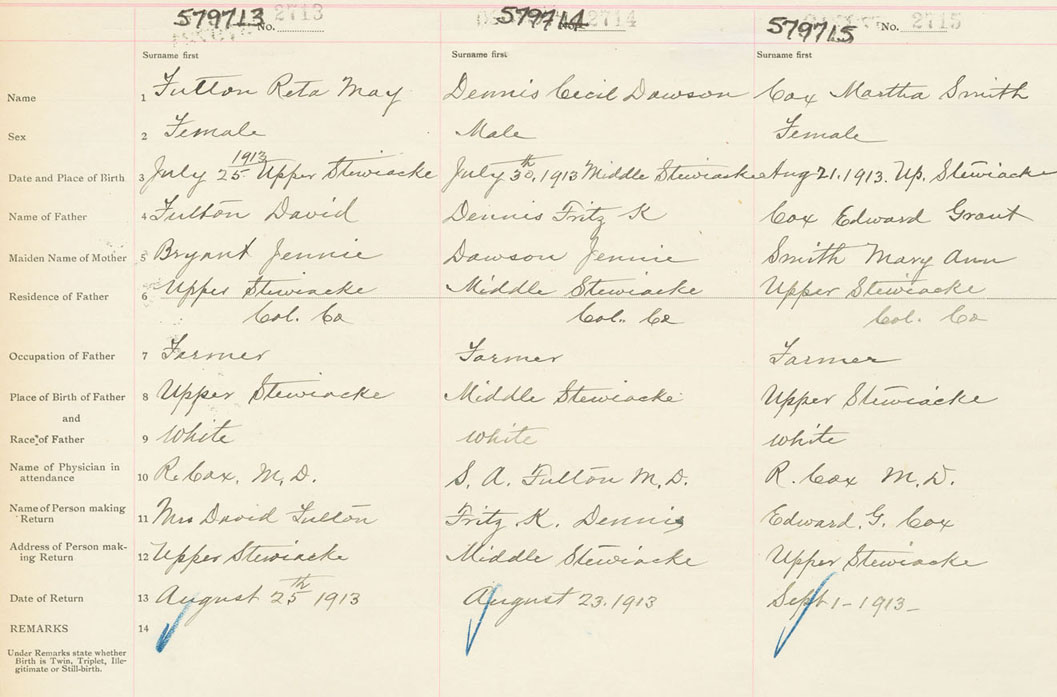 579713 No. 2713 579714 No. 2714 579715 No. 2715
Surname first Surname first Surname first
Name 1 Fulton Reta May Dennis Cecil Dawson Cox Martha Smith
Sex 2 Female Male Female
1913 th
Date and Place of Birth 3 July 25. Upper Stewiacke July 30, 1913 Middle Stewiacke Aug 21. 1913. Up. Stewiacke
Name of Father 4 Fulton David Dennis Fritz K Cox Edward Grant
Maiden Name of Mother 5 Bryant Jennie Dawson Jennie Smith Mary Ann
Residence of Father 6 Upper Stewiacke Middle Stewiacke Upper Stewiacke
Col. Co Col. Co Col. Co
Occupation of Father 7 Farmer Farmer Farmer
Place of Birth of Father 8 Upper Stewiacke Middle Stewiacke Upper Stewiacke
and
Race of Father 9 White White White
Name of Physician in
attendance 10 R. Cox, M. D. S. A. Fulton M. D. R. Cox M. D.
Name of Person making
Return 11 Mrs David Fulton Fritz K. Dennis Edward. G. Cox
Address of Person mak-
ing Return 12 Upper Stewiacke Middle Stewiacke Upper Stewiacke
Date of Return 13 August 25th 1913 August 23. 1913 Sept 1 - 1913 -
REMARKS 14
Under Remarks state whether
Birth is Twin, Triplet, Ille-
gitimate or Still-birth.